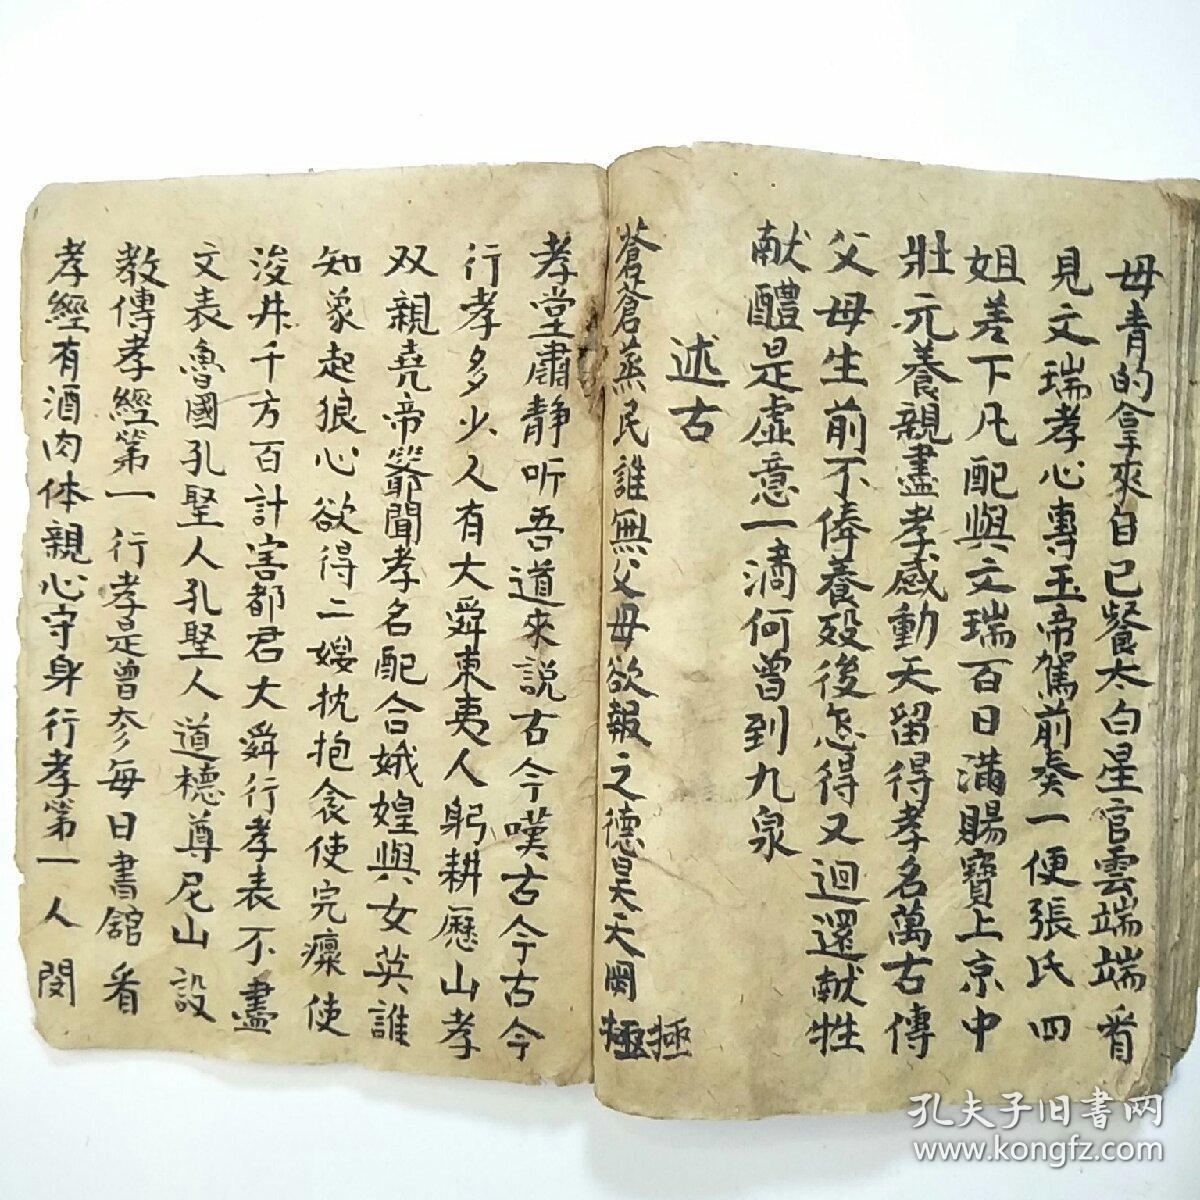 母青的拿來自已餐太白星官雲端端看
見文瑞孝心專玉帝駕前奏一便張氏四
姐差下凡配與文瑞百日滿賜寶上京中
壯元養親盡孝感動天留得孝名萬古傳
父母生前不俸養歿後怎得又迴還献牲
献醴是虛意一滴何曾到九泉
述古
蒼蒼蒸民誰無父母欲報之德昊天罔極
極
孝堂肅静听吾道來説古今嘆古今古今
行孝多少人有大舜東夷人躬耕歷山孝
双親堯帝聞孝名配合娥媓與女英誰
知象起狼心欲得二嫂枕抱衾使完廩使
浚井千方百計害都君大舜行孝表不盡
文表魯國孔聖人孔聖人道德尊尼山設
教傳孝經第一行孝是曾参每日書舘看
孝經有酒肉体親心守身行孝第一人閔
孔夫子旧书网
www.kongfz.com